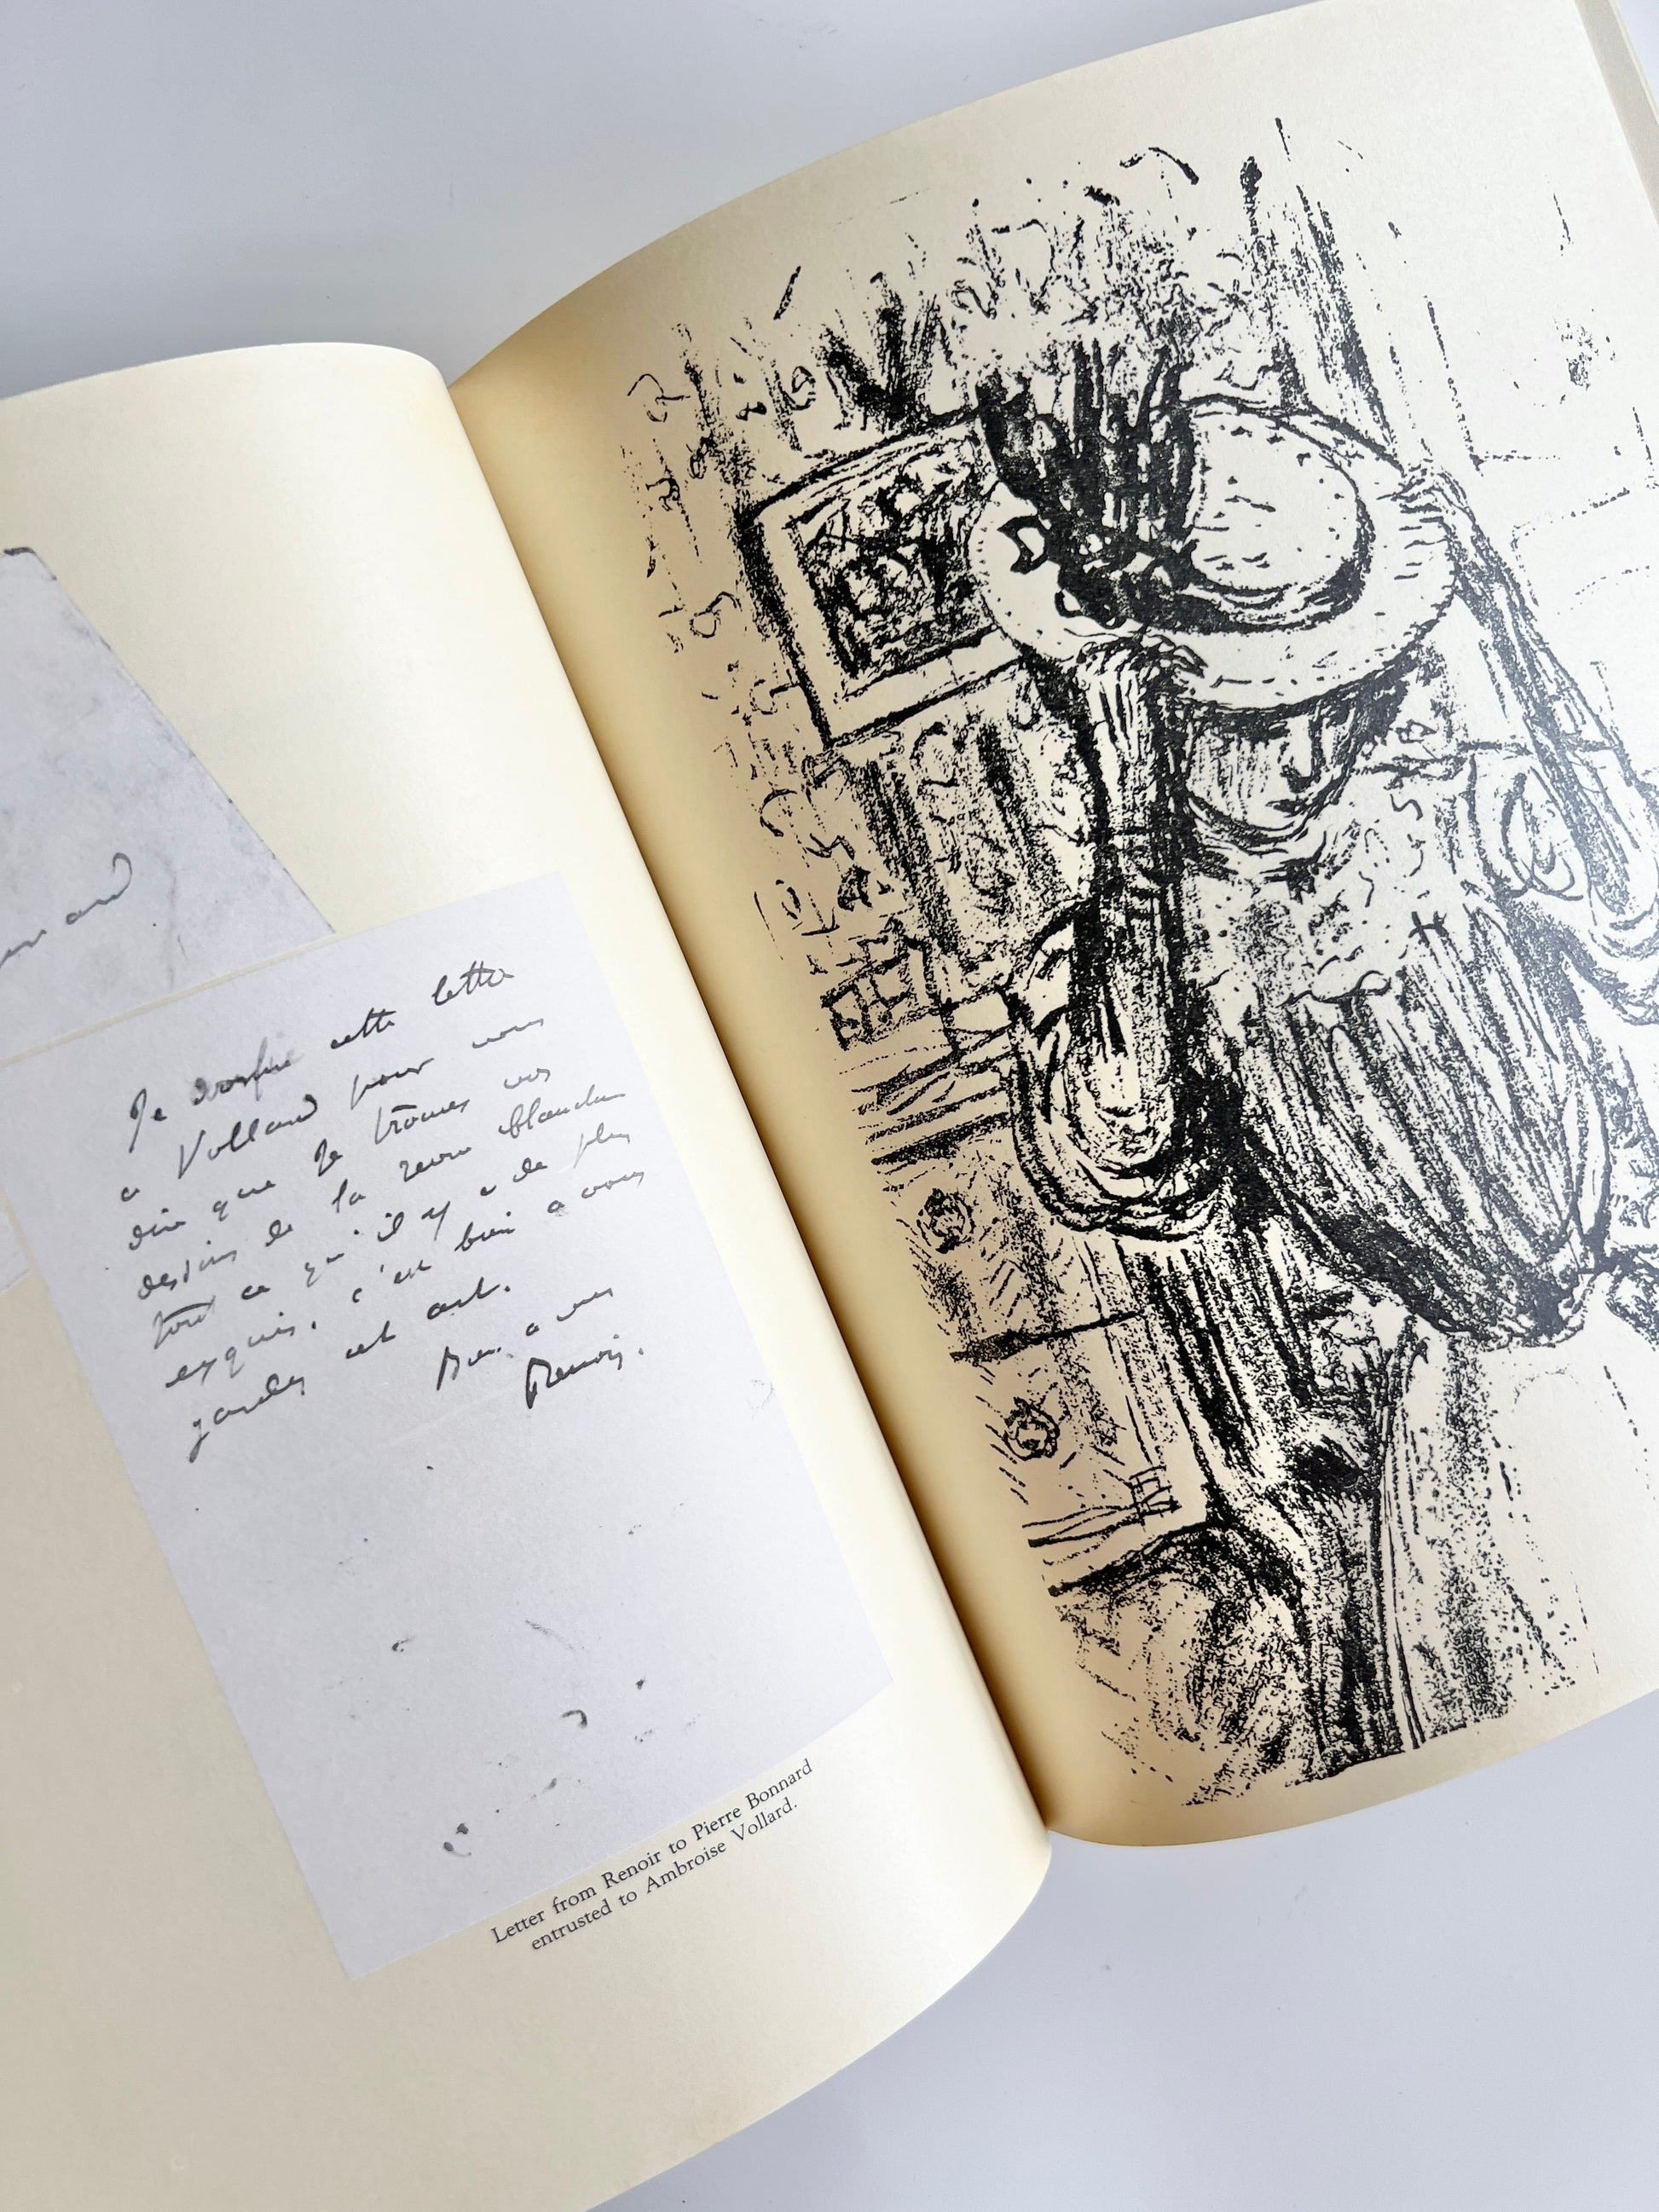 Je confie cette lettre
a Vollard pour vous
dire que Je trouves vos
dessins de la revue blanche
tout ce qu'il y a de plus
exquis. c'est bien a vous
gardez cet art.
a vous
Renoir.
Letter from Renoir to Pierre Bonnard
entrusted to Ambroise Vollard.